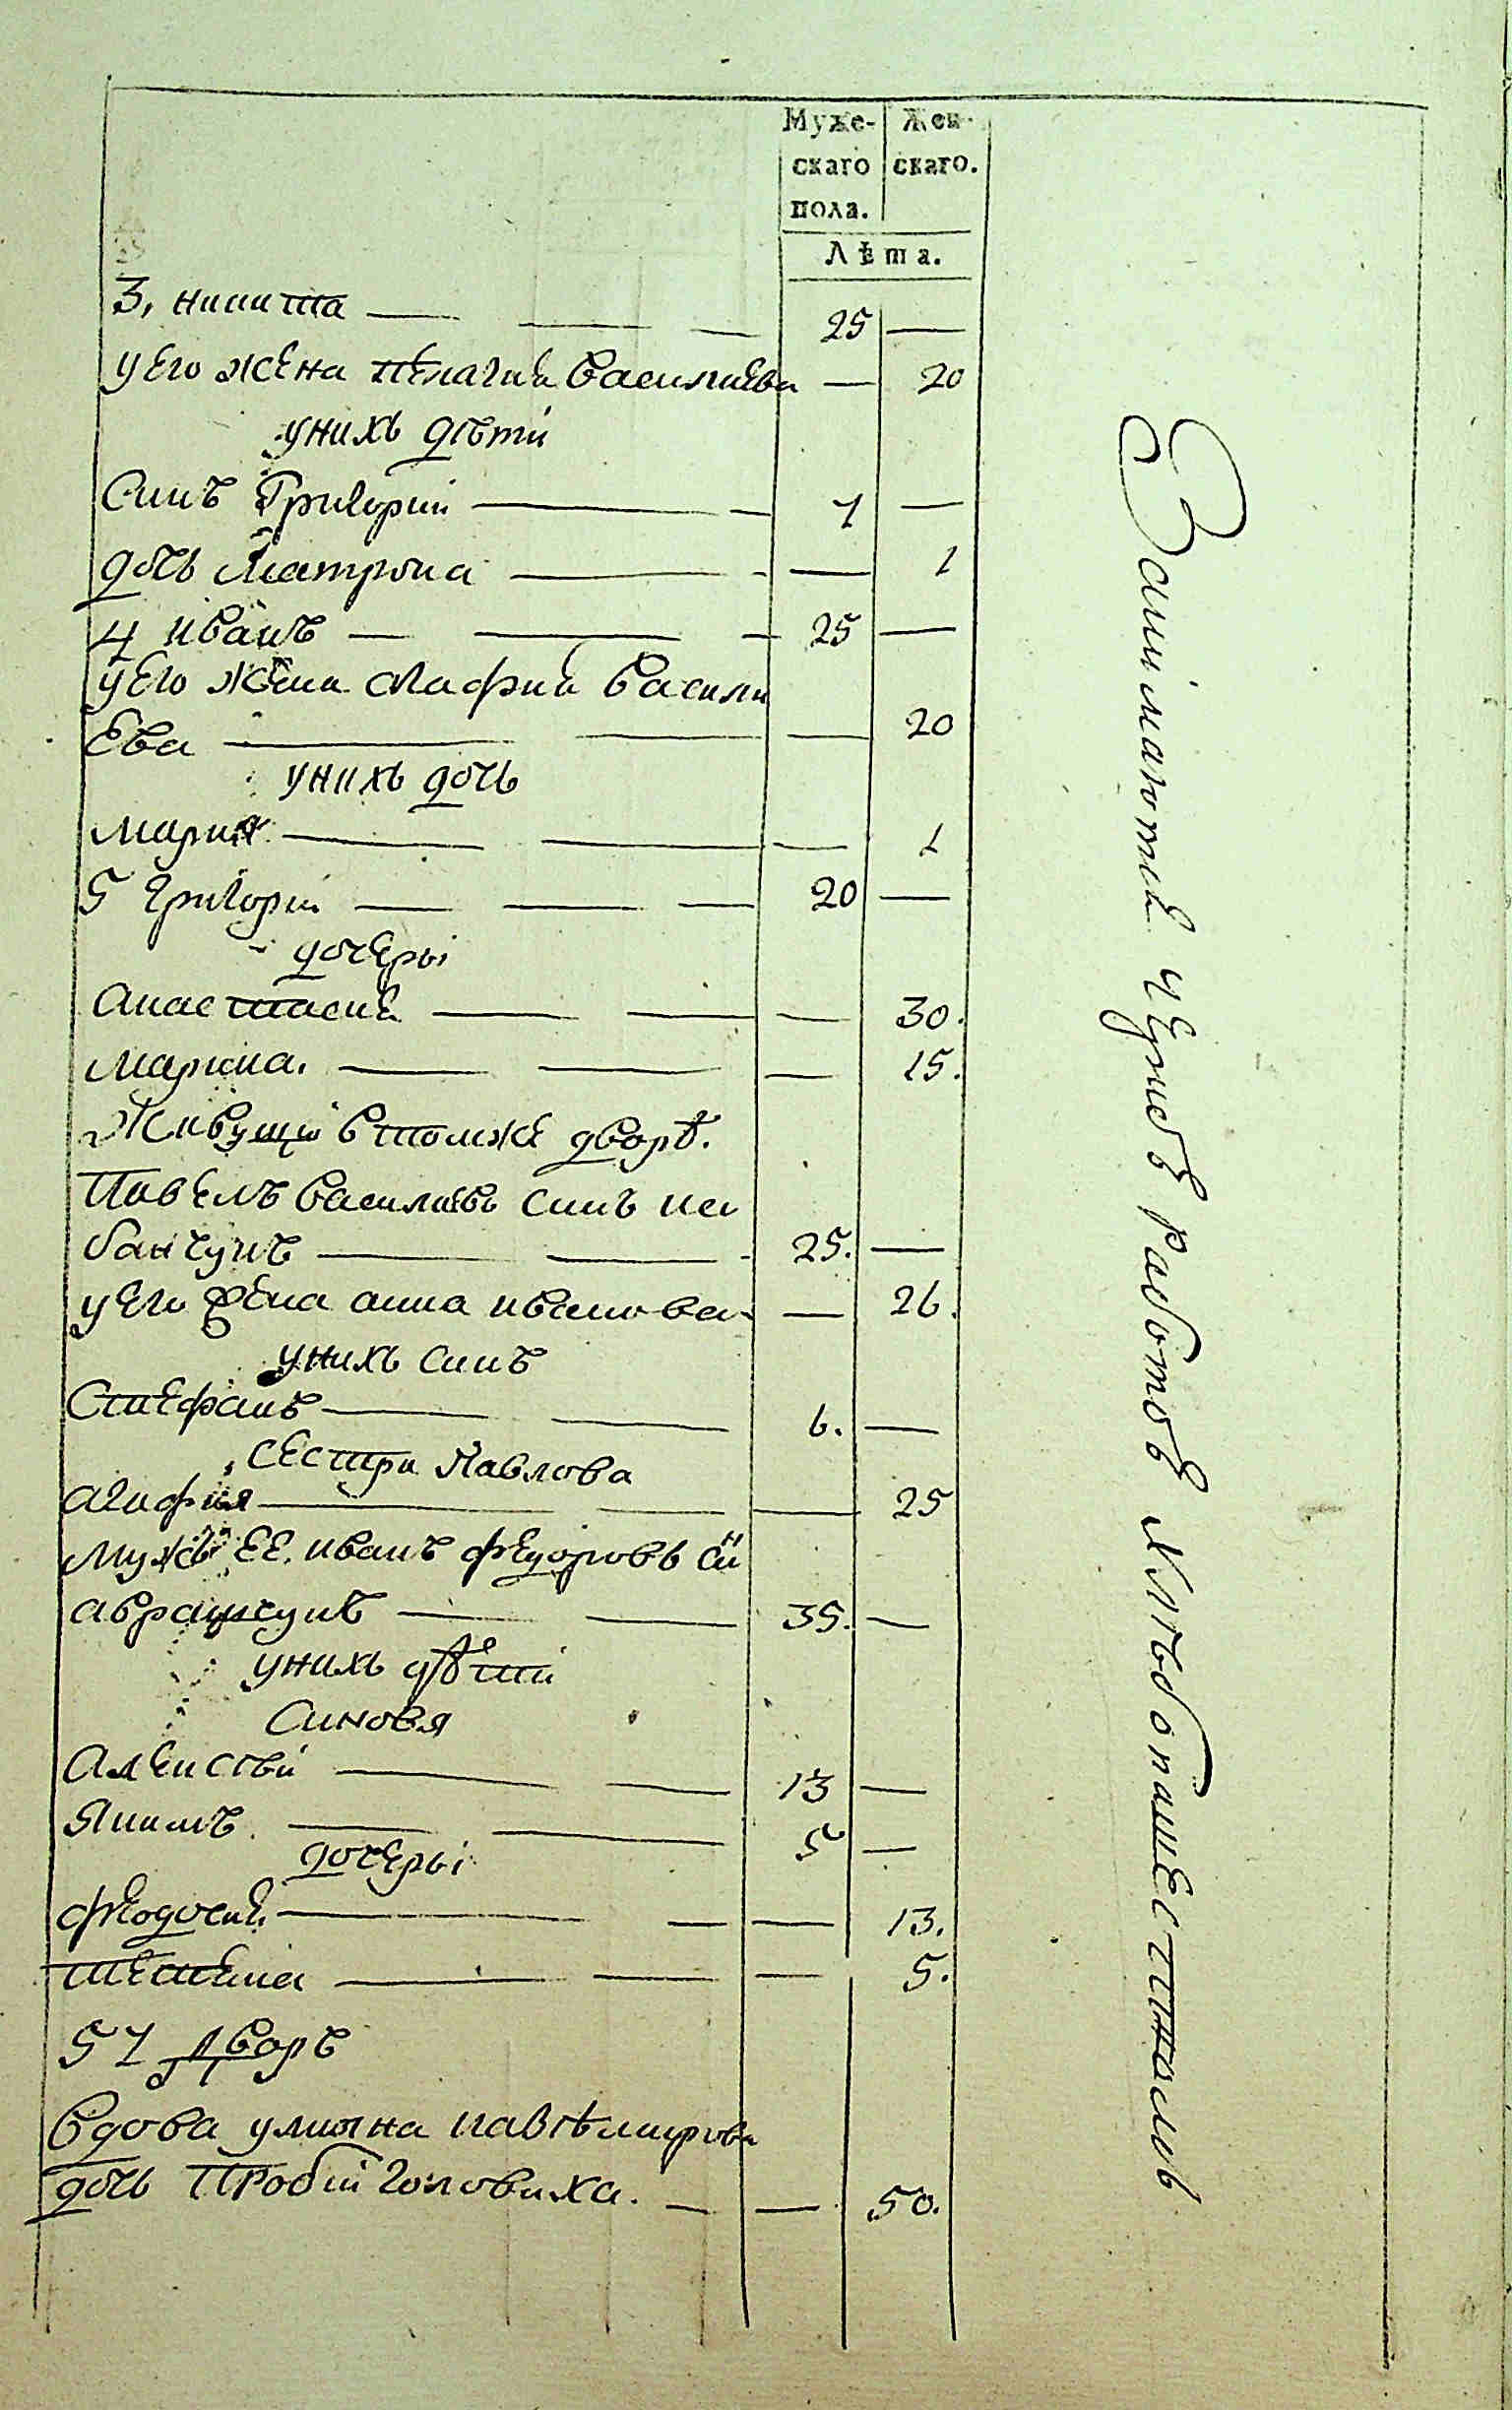 Муже- Жен-
скаго скаго.
пола.
Лѣта.
3, никита — 25 —
у его жена пелагия василиева — 20
у нихъ дѣти
Синъ Григорий — 1 —
дочь Матрона — 1
4 иванъ — 25 —
у его жена Агафия васили
ева — 20
у нихъ дочь
мария — 1
5 григорій — 20 —
дочеры
анастасия — 30.
марина. — 15.
Живущіи втомже дворѣ.
Павелъ василиевъ синъ ка
банчукъ — 25. —
у его жена анна иванова — 26.
у нихъ синъ
Стефанъ — 6. —
сестра Павлова
агафия — 25
мужъ ее. иванъ федоровъ сн
— 35. —
у нихъ дѣти
Синовя
Алексѣй — 13 —
Якимъ — 5 —
дочеры
феодосия — 13.
— 5.
57 дворъ
Вдова улияна
дочь головиха. — 50.
Занимаются чернею работою хлѣбопашествомъ